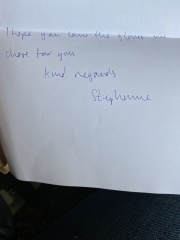 I hope you love the gloves we
chose for you
Kind regards
Stephanie